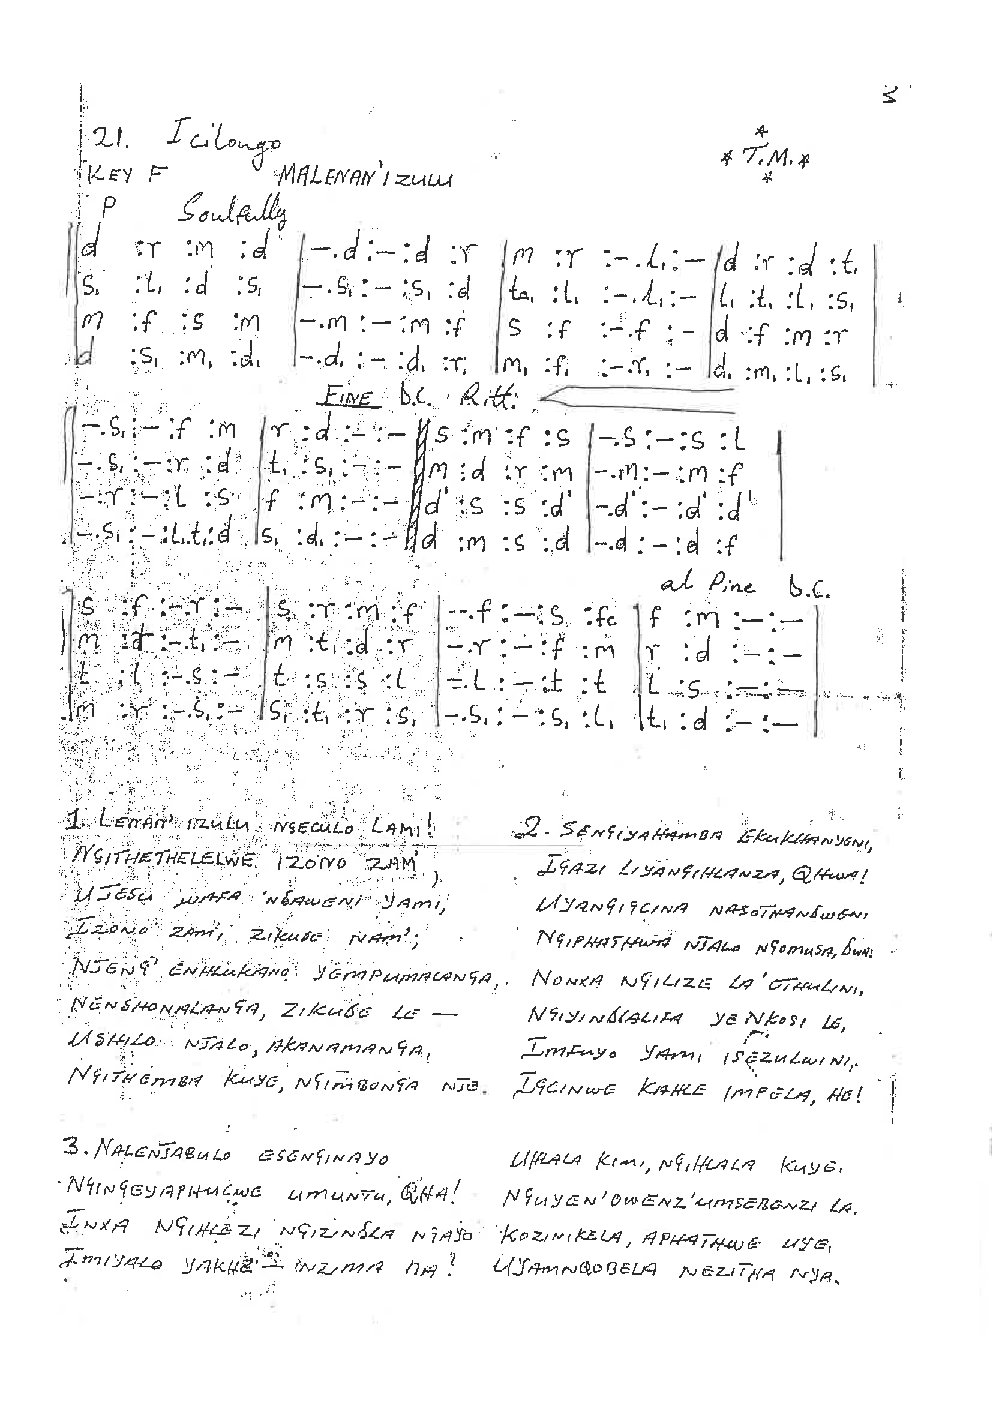 3
21. Icilongo
* T.M. *
KEY F MALENAN'IZULU
P Soulfully
d :r :m :d |–.d:–:d :r |m :r :–.l₁:–|d :r :d :t₁
s₁ :l₁ :d :s₁ |–.s₁:–:s₁ :d |ta₁ :l₁ :–.l₁:–|l₁ :t₁ :l₁ :s₁
m :f :s :m |–.m:–:m :f |s :f :–.f:–|d :f :m :r
d :s₁ :m₁ :d₁ |–.d₁:–:d₁ :r₁ |m₁ :f₁ :–.r₁:–|d₁ :m₁ :l₁ :s₁
FINE D.C. Ritt:
–.s₁:–:f :m |r :d :–:–||s :m :f :s |–.s:–:s :l
–.s₁:–:r :d |t₁ :s₁ :–:–||m :d :r :m |–.m:–:m :f
–:r:–:l :s |f :m :–:–||d' :s :s :d' |–.d':–:d' :d'
–.s₁:–:l₁.t₁:d |s₁ :d₁ :–:–||d :m :s :d |–.d:–:d :f
al Fine D.C.
s :f :–.r:–|s :r :m :f |–.f:–:s :fe |f :m :–:–
m :d :–.t₁:–|m :t₁ :d :r |–.r:–:f :m |r :d :–:–
t :l :–.s:–|t :s :s :l |–.l:–:t :t |l :s :–:–
m :r :–.s₁:–|s₁ :t₁ :r :s₁ |–.s₁:–:s₁ :l₁ |t₁ :d :–:–
1. LENAN' IZULU NSECULO LAMI!
NGITHETHELELWE IZONO ZAM',
UJESU WAFA 'NDAWENI YAMI,
IZONO ZAMI, ZIKUDE NAM';
NJENG' ENHLUKANO YEMPUMALANGA,
NENSHONALANGA, ZIKUDE LE —
USHILO NJALO, AKANAMANGA,
NGITHEMBA KUYE, NGIMBONGA NJE.
2. SENGIYAHAMBA EKUKHANYENI,
IGAZI LIYANGIHLANZA, QHWA!
UYANGIGCINA NASOTHANDWENI
NGIPHATHWA NJALO NGOMUSA, DWA!
NONXA NGILIZE LA' ETHULINI,
NGIYINDLALIFA YENKOSI LE,
IMFUYO YAMI ISEZULWINI,
IGCINWE KAHLE IMPELA, HE!
3. NALENJABULO ESENGINAYO
NGINGEYAPHULWE UMUNTU, QHA!
INXA NGIHLEZI NGIZINDLA NGAYO
IMIYALO YAKHE — INZIMA NA?
UHLALA KIMI, NGIHLALA KUYE.
NGUYEN'OWENZ'UMSEBENZI LA.
KOZINIKELA, APHATHWE UYE,
UYAMNQOBELA NEZITHA NYA.